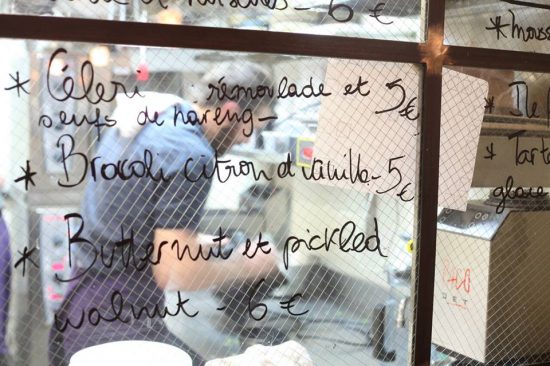 6 €
* Céleri rémoulade et 5€
oeufs de hareng -
* Brocoli citron et vanille - 5€
* Butternut et pickled
walnut - 6 €
* mouss
* Ile
* Tarta
glace